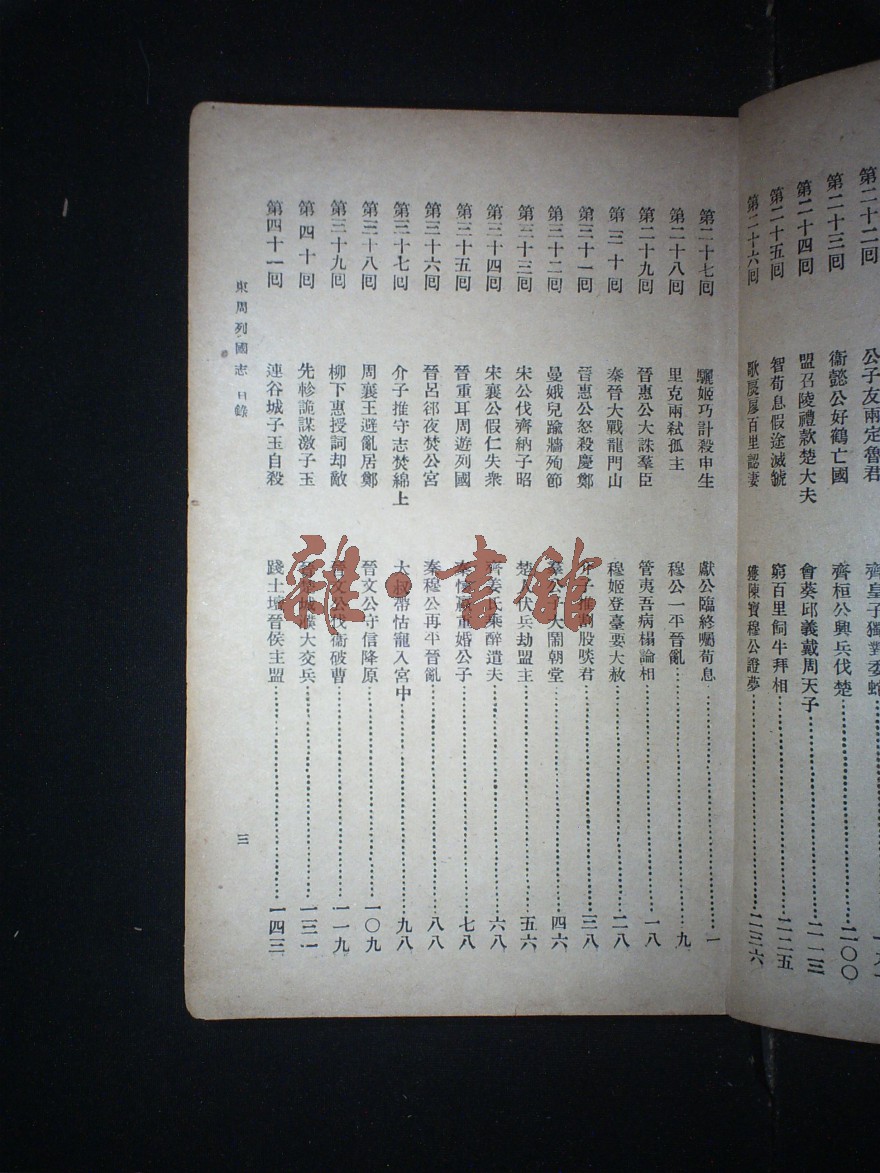 第二十二回 公子友兩定魯君 齊皇子獨對委蛇
第二十三回 衞懿公好鶴亡國 齊桓公興兵伐楚……二〇〇
第二十四回 盟召陵禮款楚大夫 會葵邱義戴周天子……二一三
第二十五回 智荀息假途滅虢 窮百里飼牛拜相……二二五
第二十六回 歌扊扅百里認妻 獲陳寶穆公證夢……二三六
第二十七回 驪姬巧計殺申生 獻公臨終囑荀息……一
第二十八回 里克兩弒孤主 穆公一平晉亂……九
第二十九回 晉惠公大誅羣臣 管夷吾病榻論相……一八
第三十回 秦晉大戰龍門山 穆姬登臺要大赦……二八
第三十一回 晉惠公怒殺慶鄭 介子推割股啖君……三八
第三十二回 晏娥兒踰牆殉節 羣公子大鬧朝堂……四六
第三十三回 宋公伐齊納子昭 楚人伏兵劫盟主……五六
第三十四回 宋襄公假仁失衆 齊姜氏乘醉遣夫……六八
第三十五回 晉重耳周遊列國 秦懷嬴重婚公子……七八
第三十六回 晉呂郤夜焚公宮 秦穆公再平晉亂……八八
第三十七回 介子推守志焚綿上 大叔帶怙寵入宮中……九八
第三十八回 周襄王避亂居鄭 晉文公守信降原……一〇九
第三十九回 柳下惠授詞却敵 晉文公伐衞破曹……一一九
第四十回 先軫詭謀激子玉 晉楚城濮大交兵……一三一
第四十一回 連谷城子玉自殺 踐土壇晉侯主盟……一四三
東周列國志 目錄 三
雜·書館